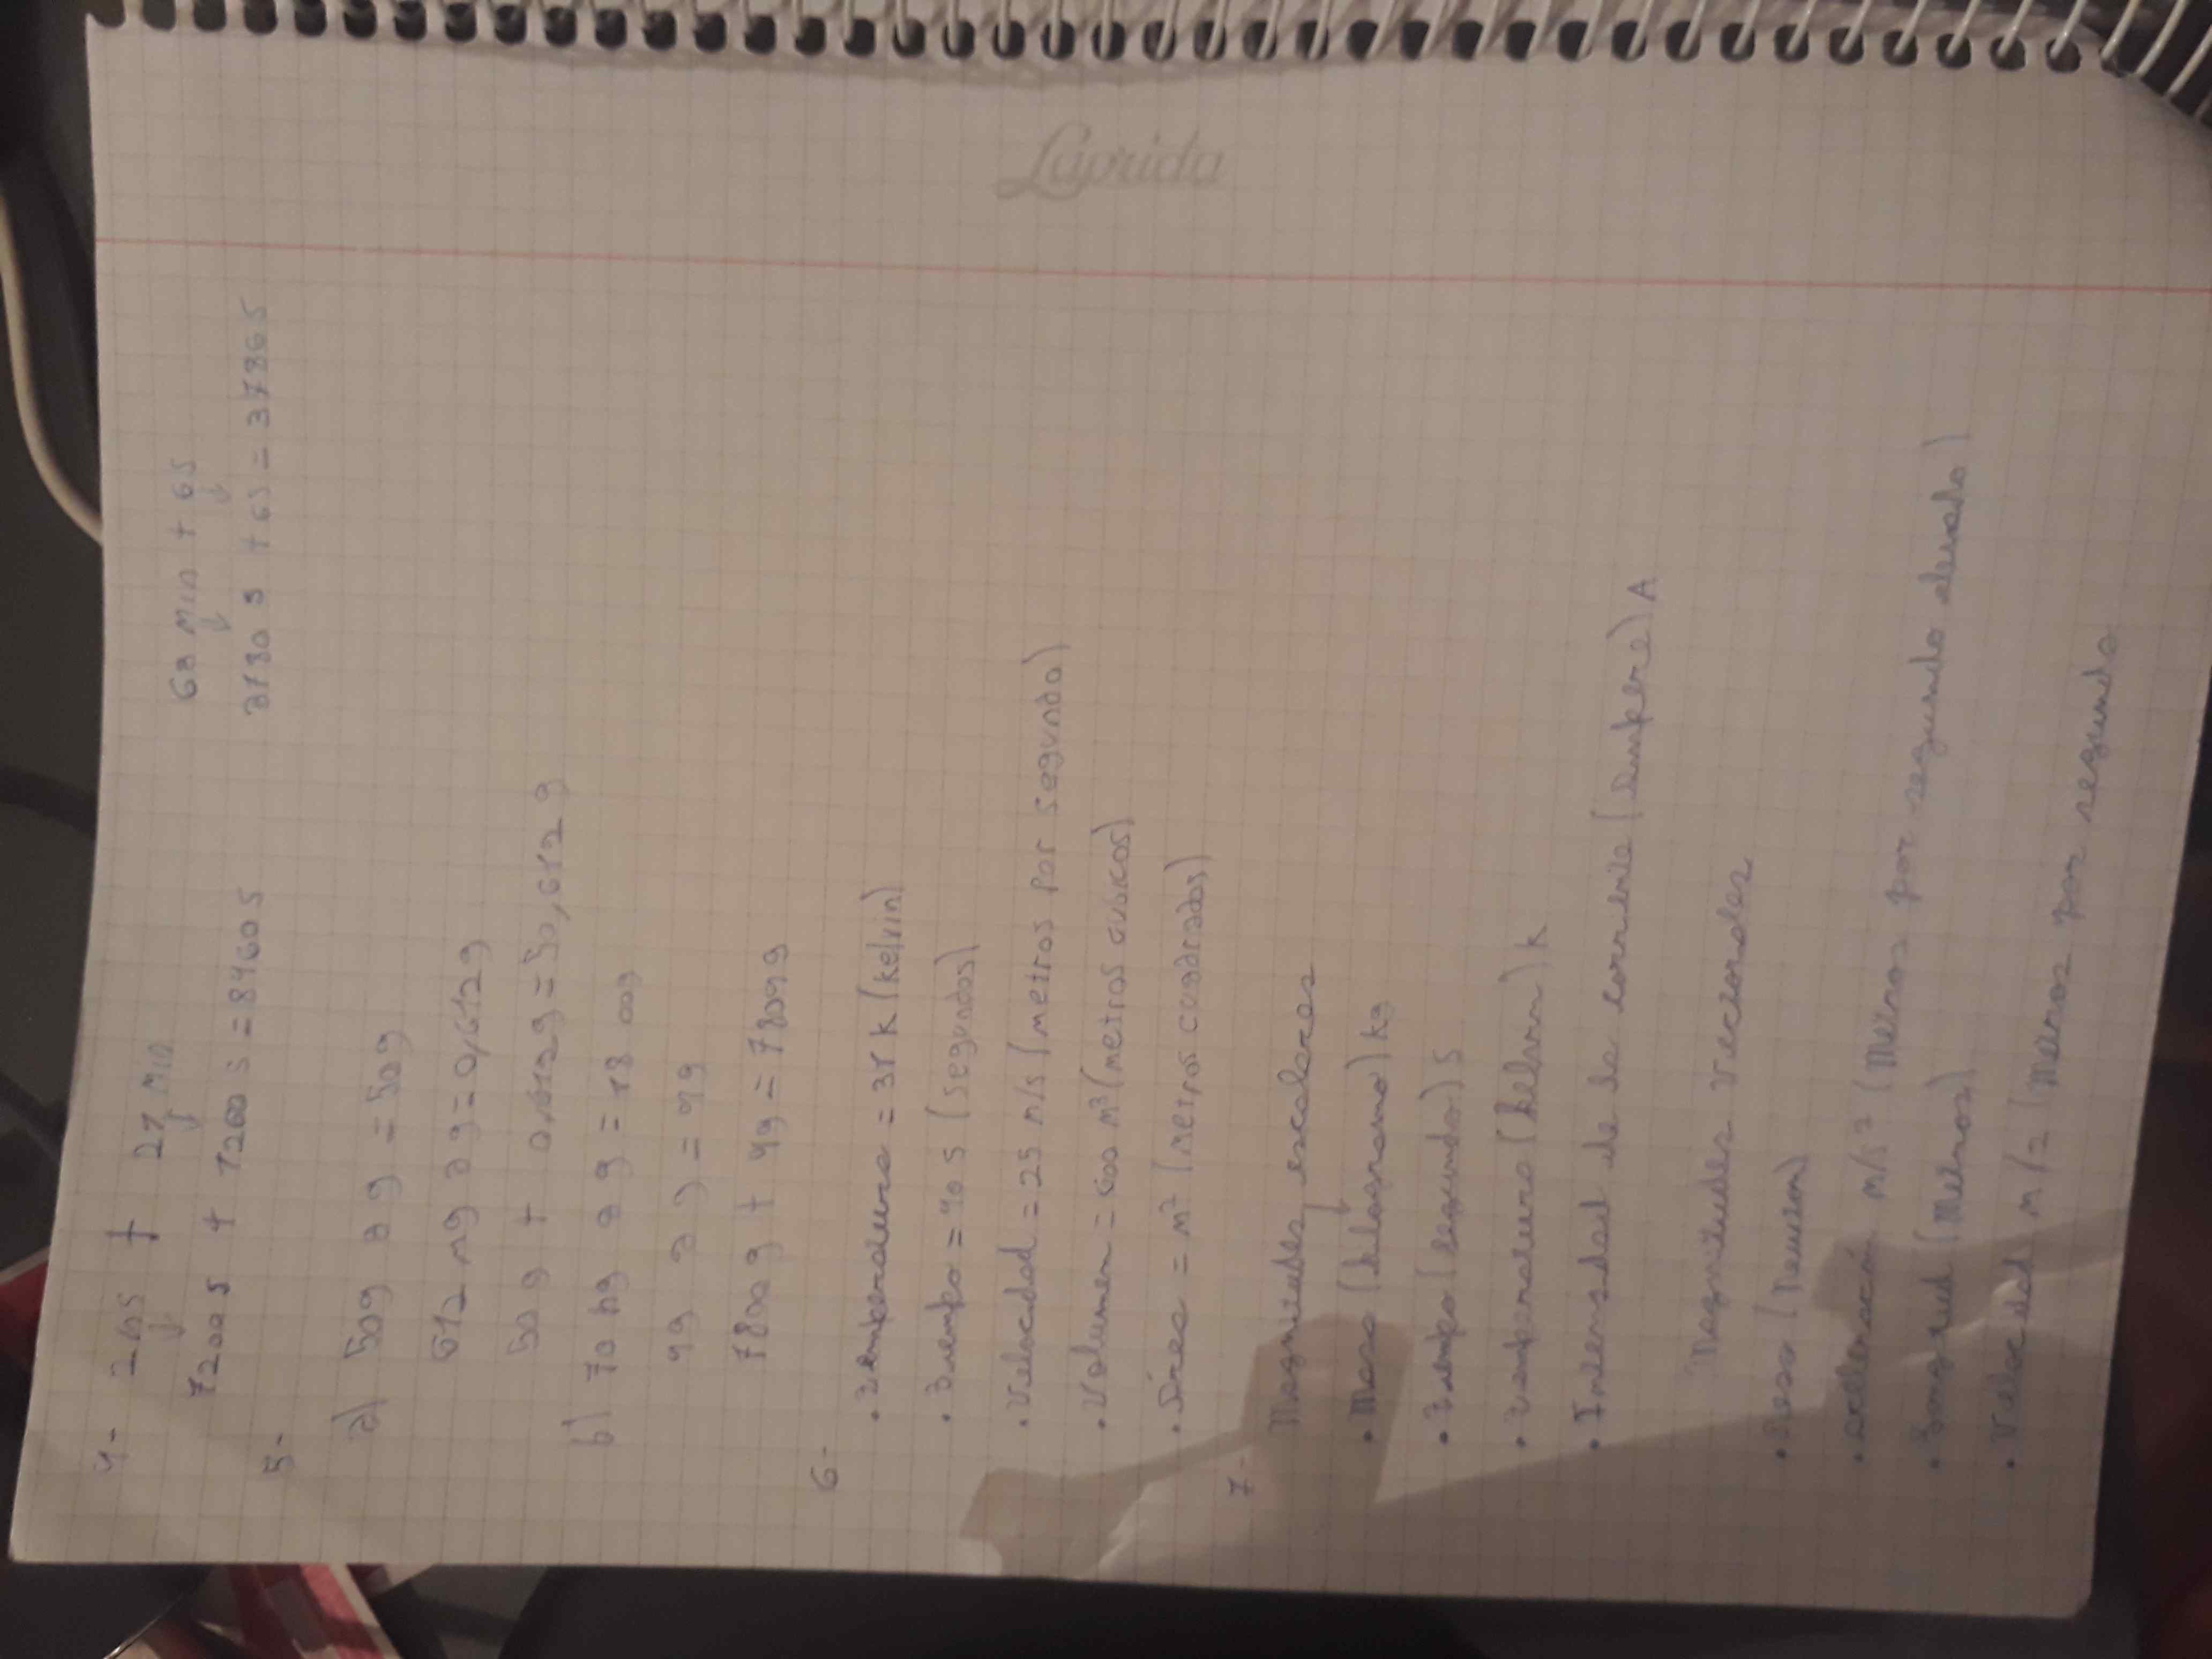 Laprida
4- 2hs + 21 Min
7200 s + 1260 s = 8460 s
63 Min + 6s
3780 s + 6s = 3786 s
5-
a) 50g a g = 50g
612 mg a g = 0,612g
50 g + 0,612g = 50,612 g
b) hg a g =
= 4g
g + 4g =
6-
• Temperatura = K (kelvin)
• Tiempo = 40 s (segundos)
• Velocidad = 25 m/s (metros por segundo)
• Volumen = 600 m³ (metros cubicos)
• Área = m² (metros cuadrados)
7-
Magnitudes escalares
• Masa (kilogramo) kg
• Tiempo (segundo) s
• Temperatura (kelvin) K
• Intensidad de la corriente (ampere) A
Magnitudes vectoriales
• Peso (Newton)
• aceleración m/s² (Metros por segundo elevado)
• (Metros)
• Velocidad m/2 (Metros por segundo